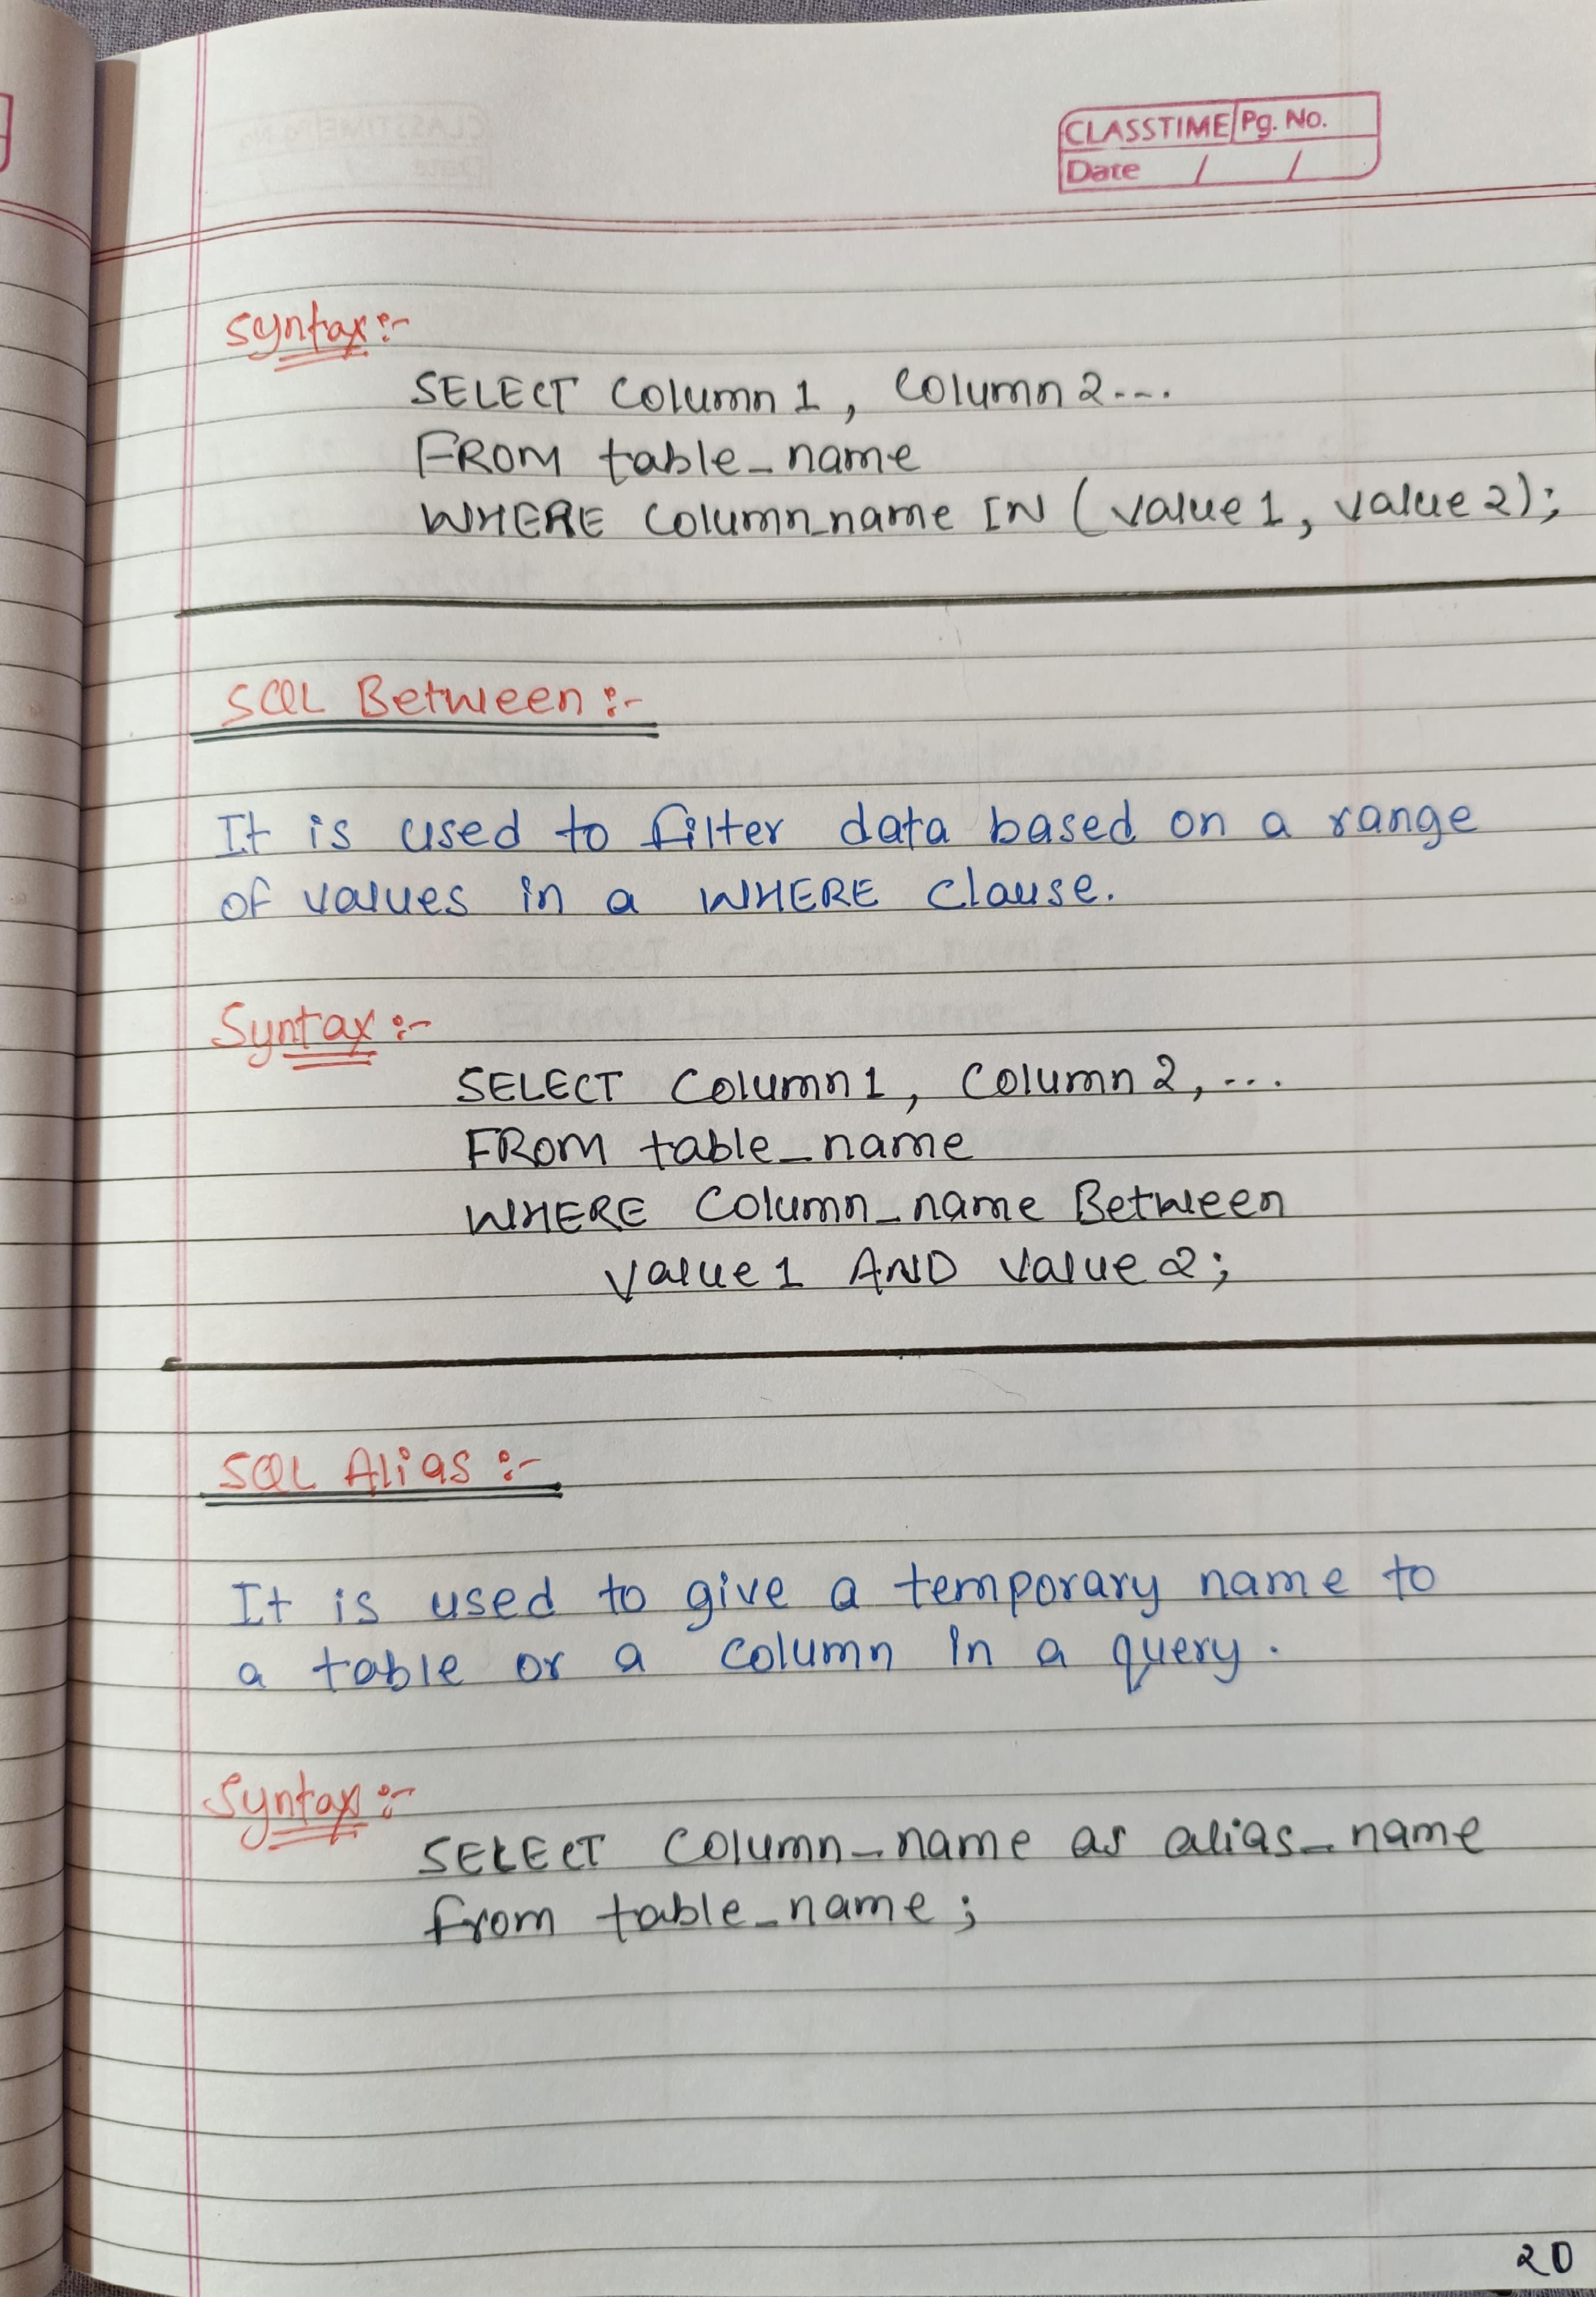 CLASSTIME Pg. No.
Date / /
Syntax:-
SELECT Column1, Column2...
FROM table_name
WHERE Column_name IN (value1, value2);
SQL Between:-
It is used to filter data based on a range
of values in a WHERE Clause.
Syntax:-
SELECT Column1, Column2,...
FROM table_name
WHERE Column_name Between
Value1 AND Value2;
SQL Alias:-
It is used to give a temporary name to
a table or a column in a query.
Syntax:-
SELECT Column_name as alias_name
from table_name;
20